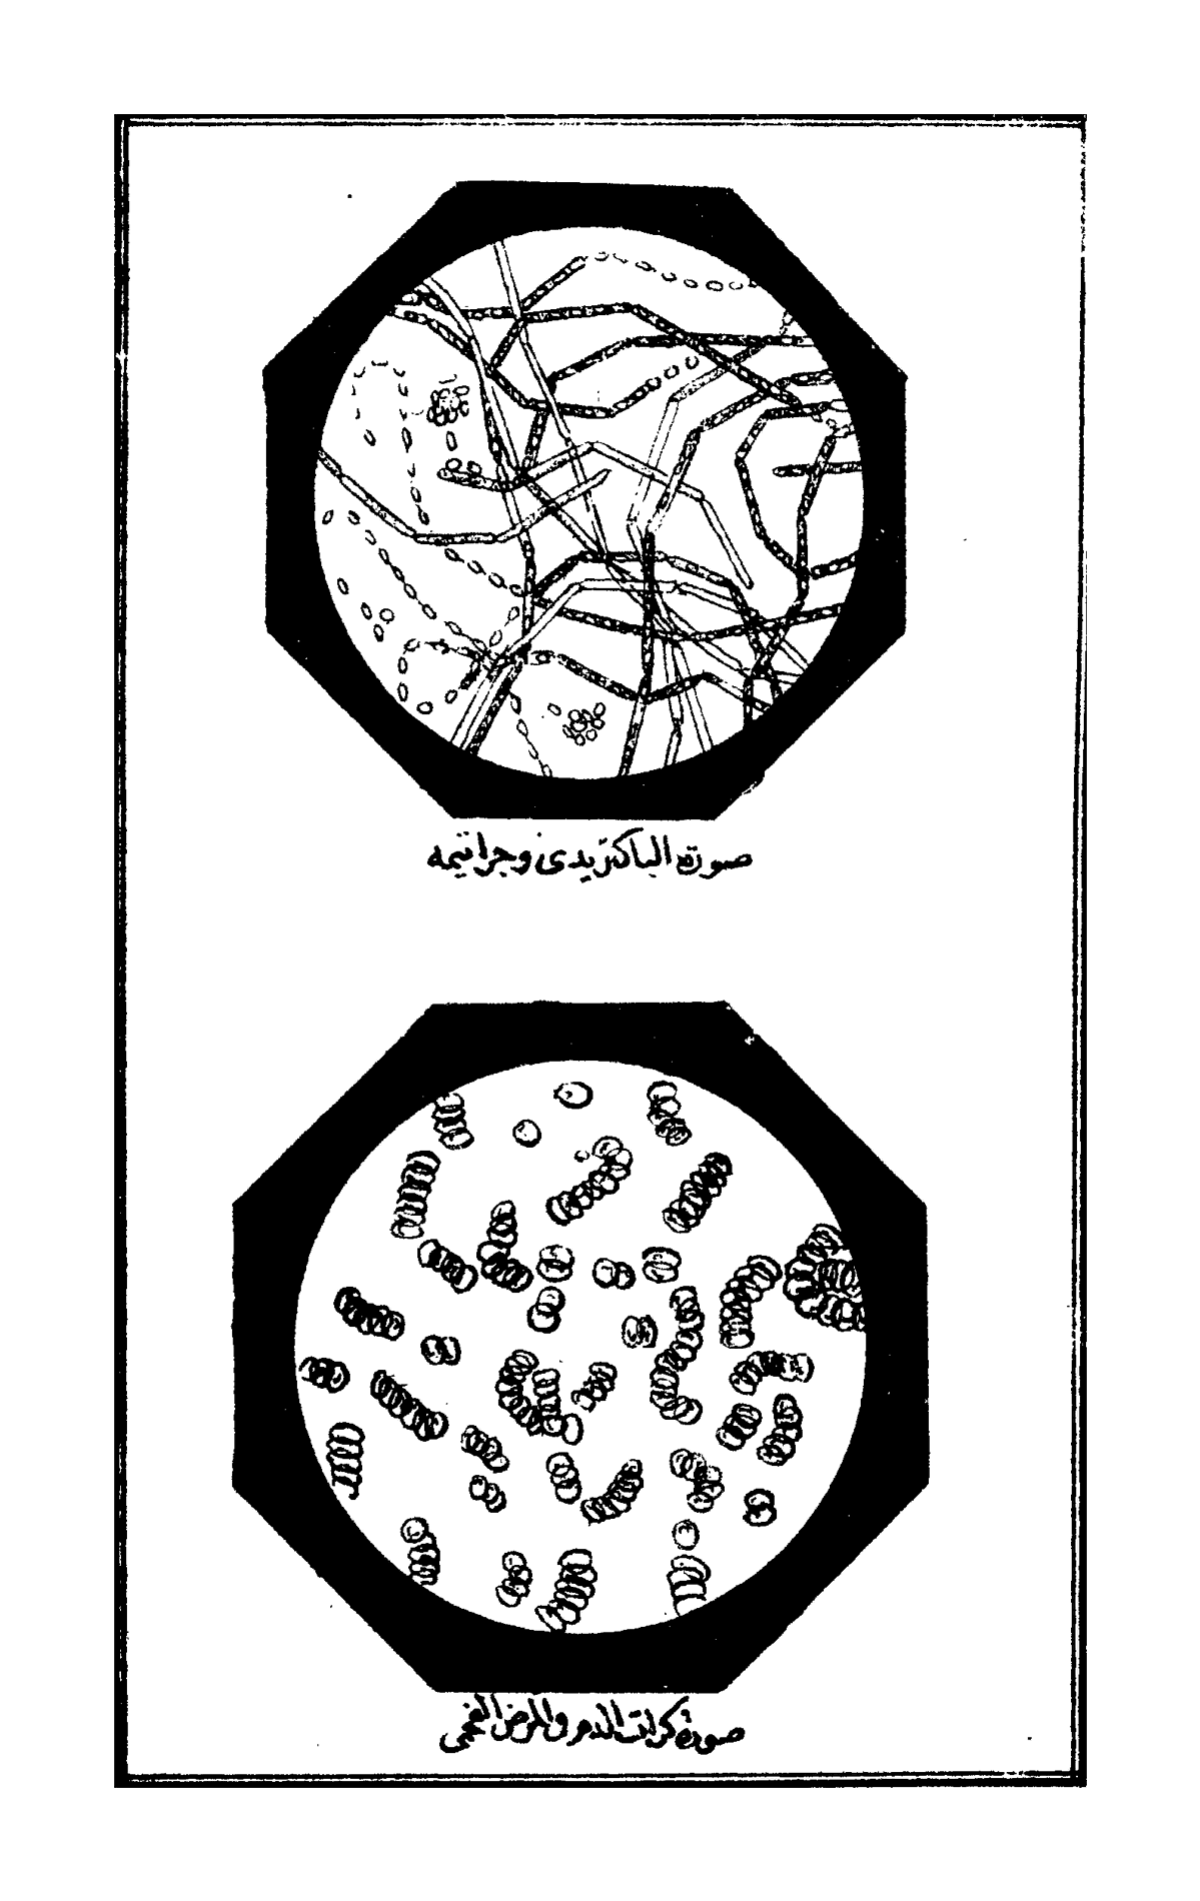 صورة الباكتريدى وجراثيمه
صورة كرات الدم والمرض الفحمى